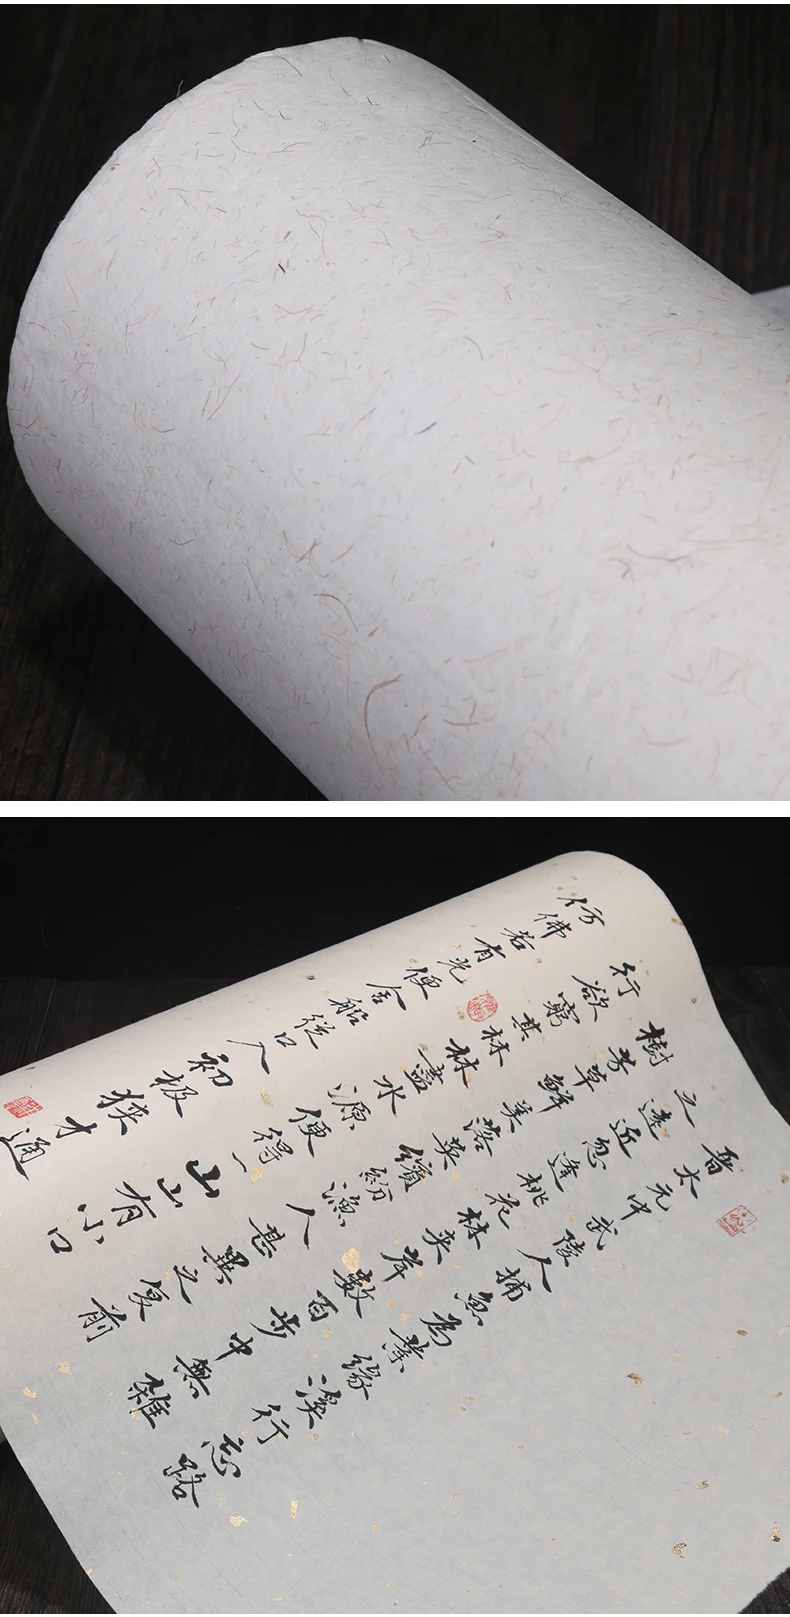 晉太元中武陵人捕魚為業緣溪行忘路
之遠近忽逢桃花林夾岸數百步中無雜
樹芳草鮮美落英繽紛漁人甚異之復前
行欲窮其林林盡水源便得一山山有小口
仿佛若有光便舍船從口入初極狹才通